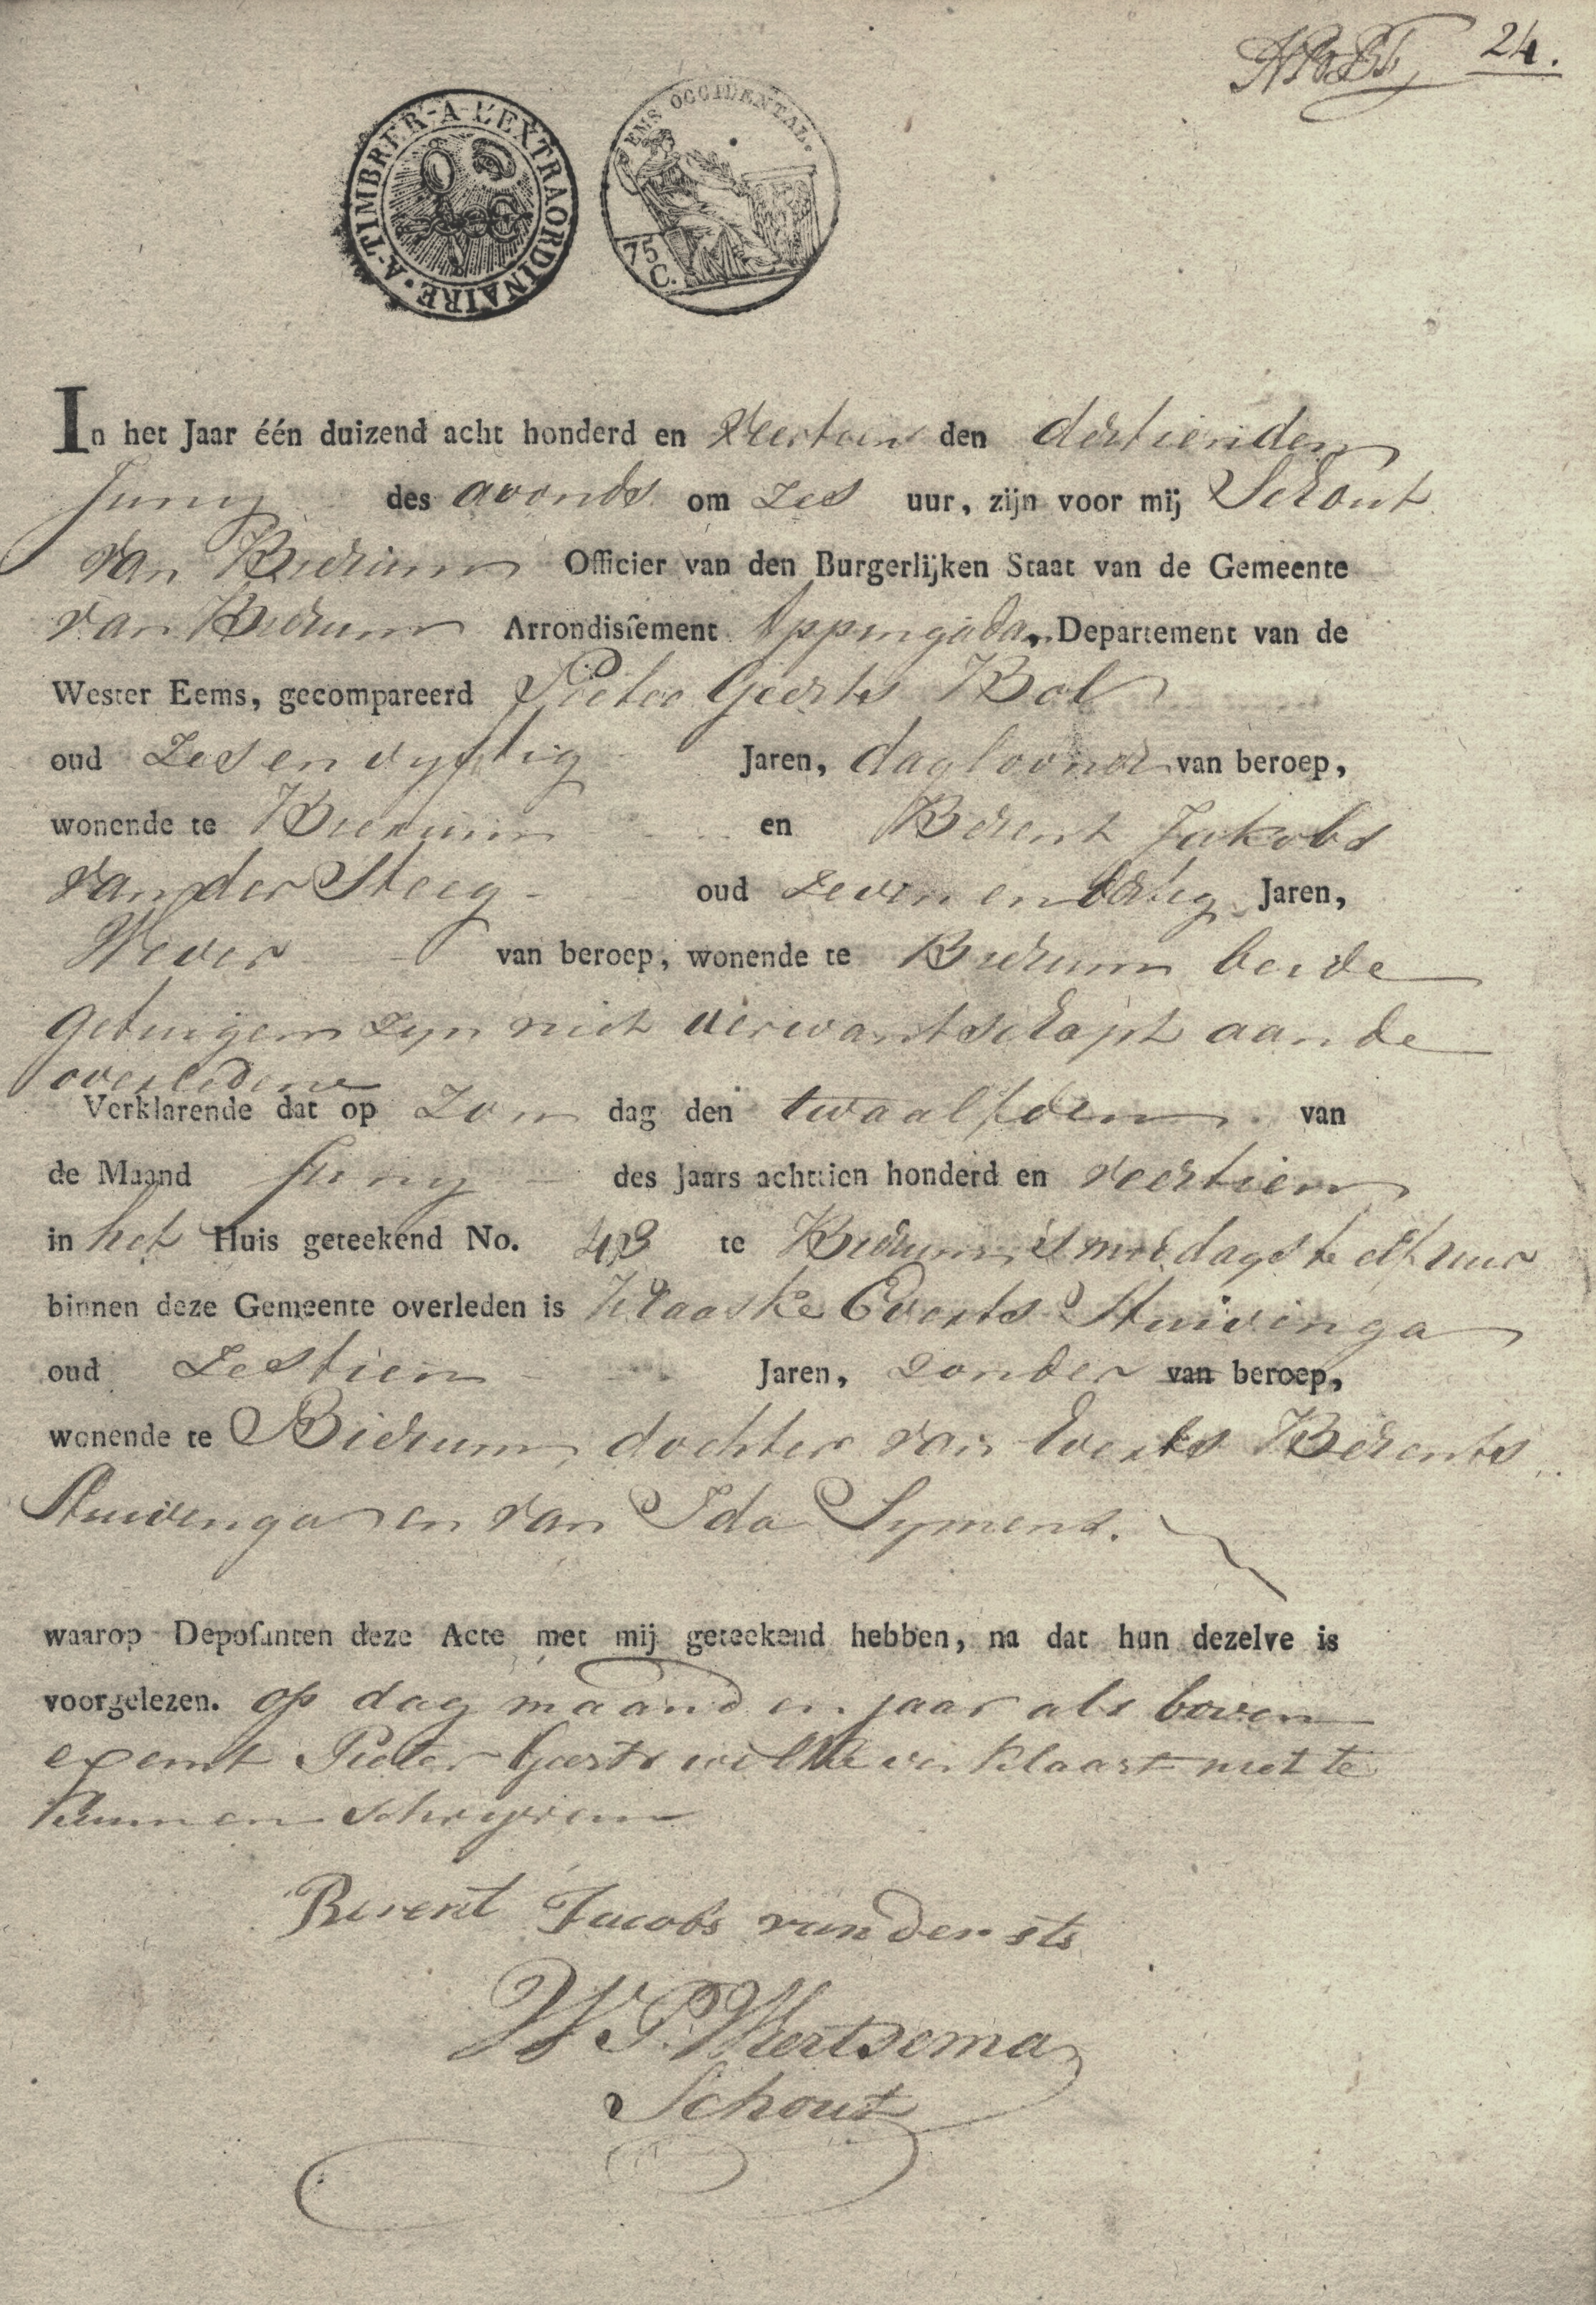 24.
A-TIMBRER-A-L'EXTRAORDINAIRE.
EMS OCCIDENTAL.
75 C.
In het Jaar één duizend acht honderd en veertien den dertienden
Juny des avonds om zes uur, zijn voor mij Schout
van Bierum Officier van den Burgerlijken Staat van de Gemeente
van Bierum Arrondisſement Appingada, Departement van de
Wester Eems, gecompareerd Pieter Geerts Bol
oud zes en vyftig Jaren, daglooner van beroep,
wonende te Bierum en Berent Jakobs
van der Steeg oud zeven en dertig Jaren,
Wever van beroep, wonende te Bierum beide
getuigen zyn niet verwantschapt aan de
overledene
Verklarende dat op Zon dag den twaalfden van
de Maand Juny des Jaars achttien honderd en veertien
in het Huis geteekend No. 43 te Bierum 's middags te elf uur
binnen deze Gemeente overleden is Klaaske Everts Stuivinga
oud zestien Jaren, zonder van beroep,
wonende te Bierum dochter van Everts Berents
Stuivenga en van Ida Symens.
waarop Depoſanten deze Acte met mij geteekend hebben, na dat hun dezelve is
voorgelezen. op dag maand en jaar als boven
exemt Pieter Geerts welke verklaart niet te
kunnen schryven
Berent Jacobs van der ste
W P. Wiertsema
Schout